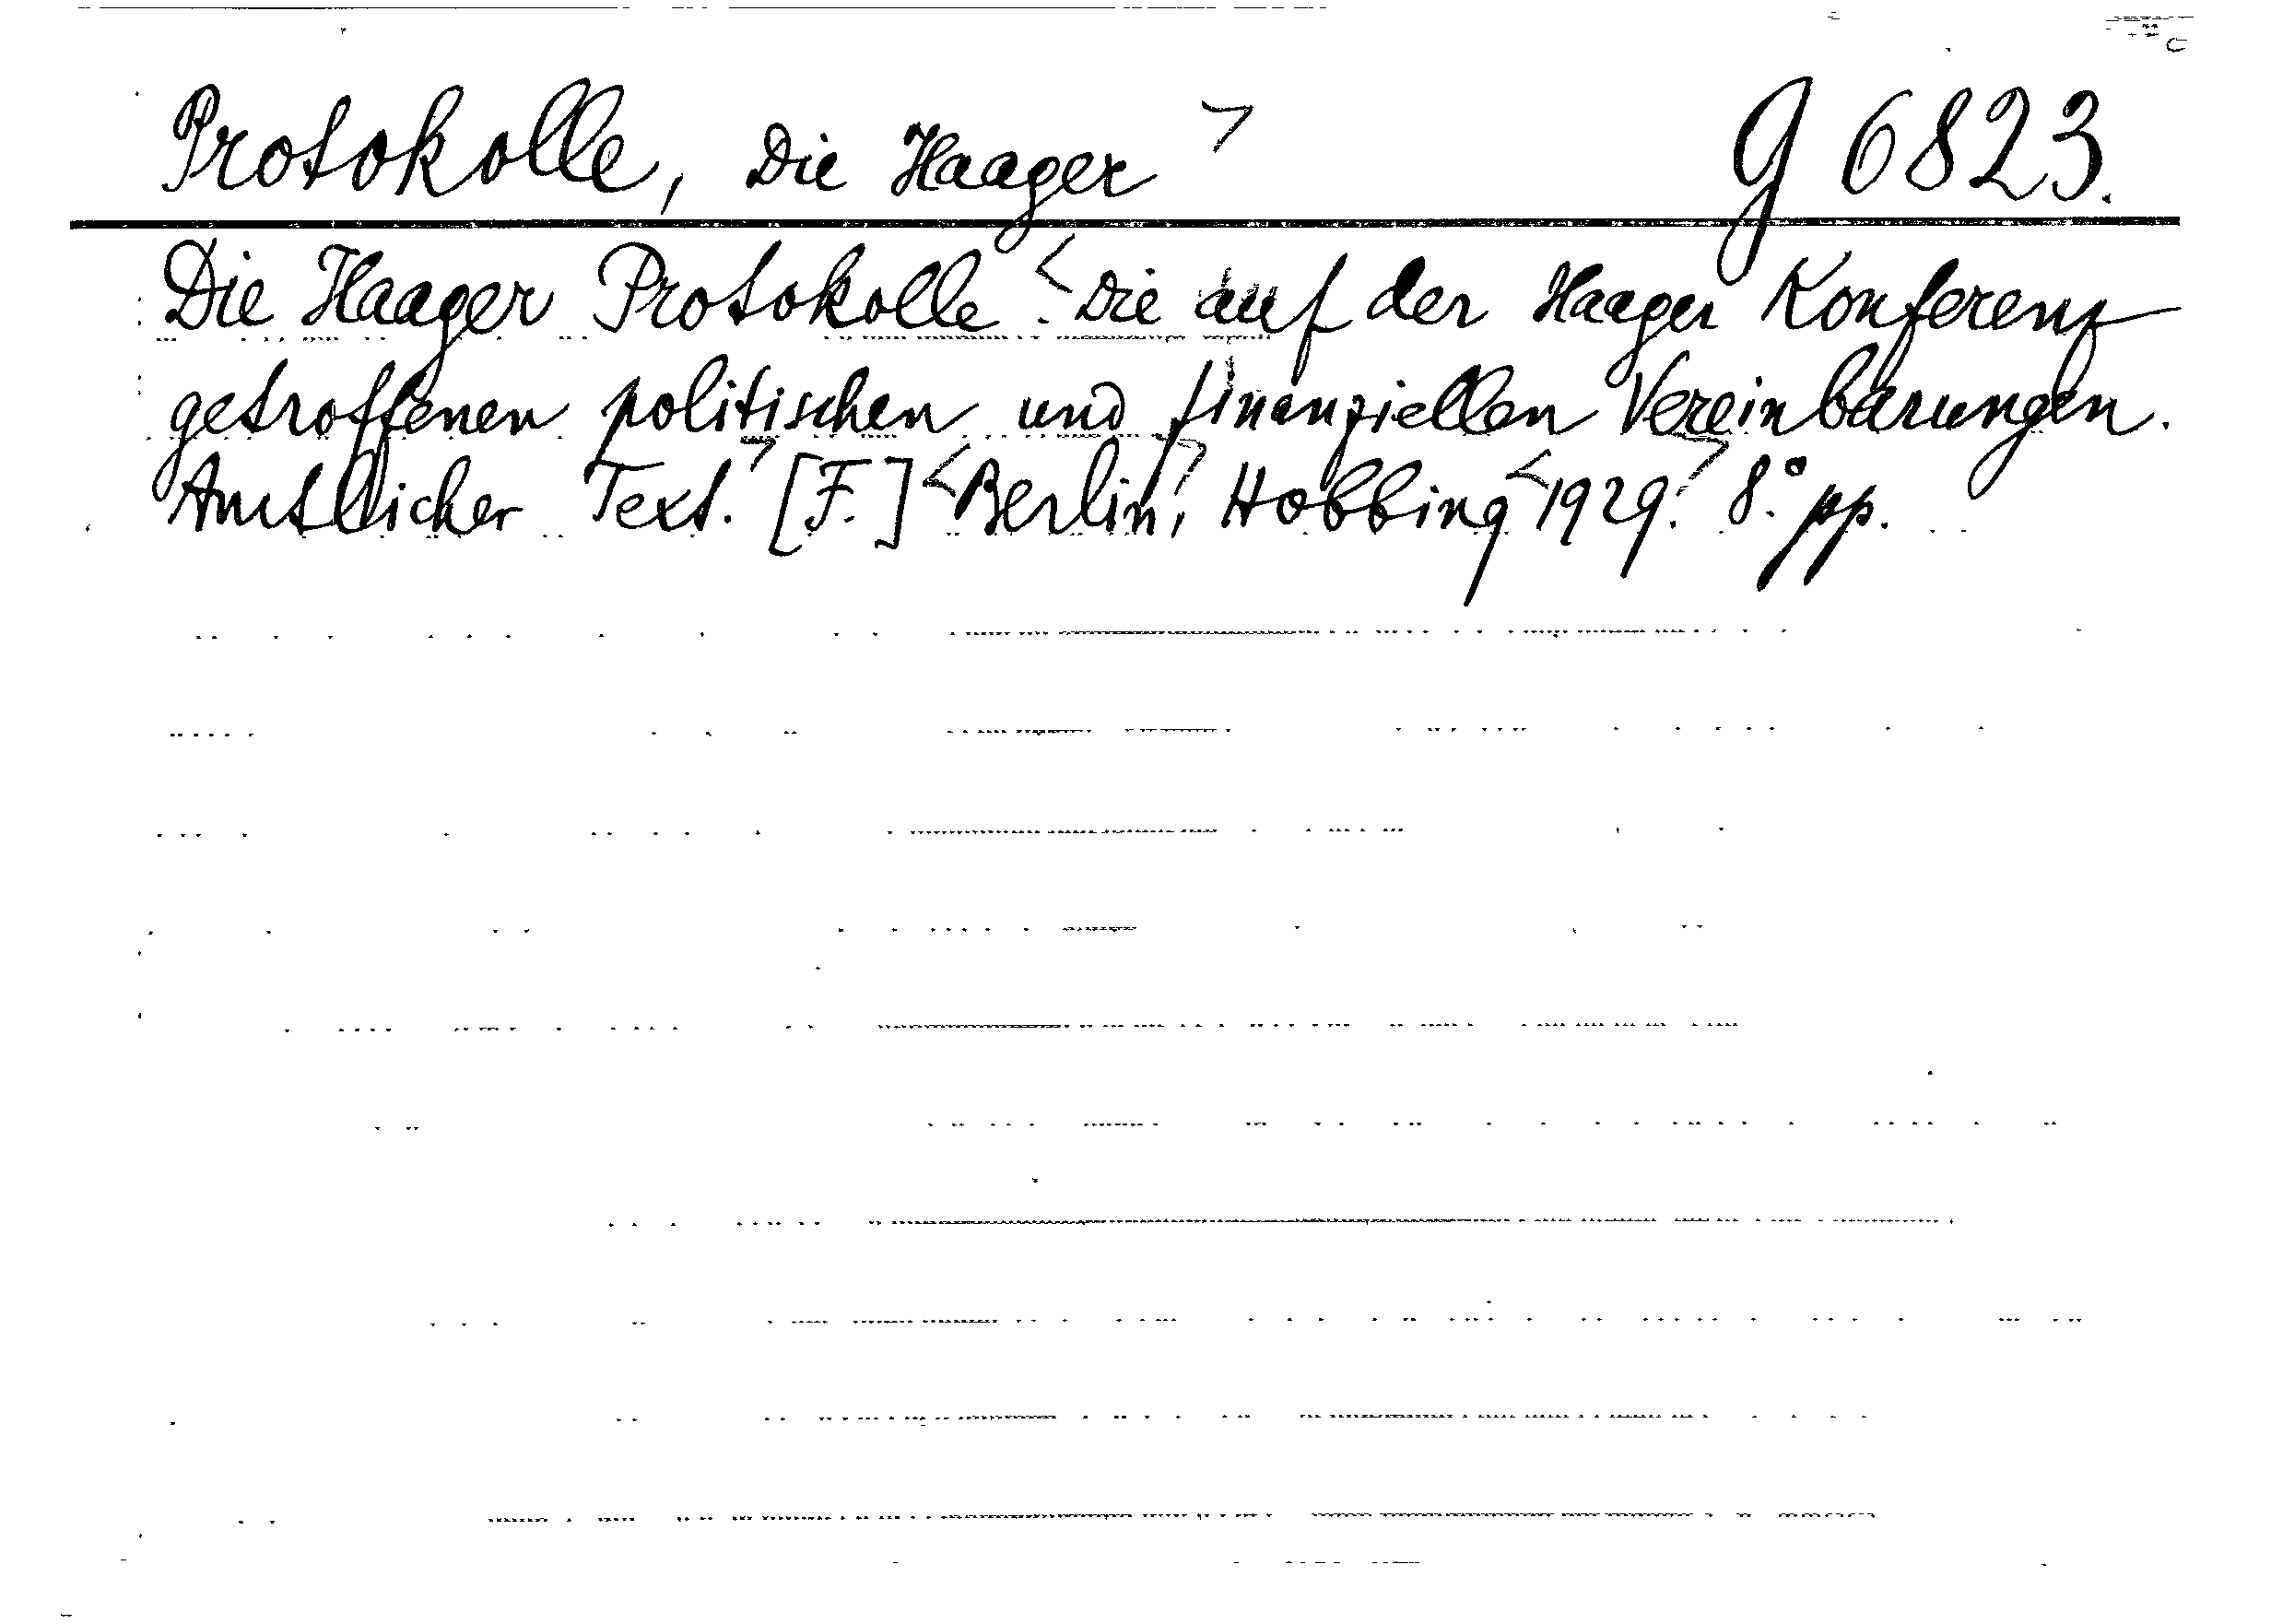 Protokolle, Die Haager > G 6823.
Die Haager Protokolle. < Die auf der Haager Konferenz
getroffenen politischen und finanziellen Vereinbarungen.
Amtlicher Text. > [F.] < Berlin, > Hobbing < 1929. > 8° pp.